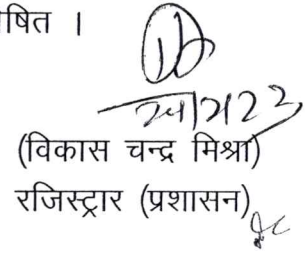 षित ।
(विकास चन्द्र मिश्रा)
रजिस्ट्रार (प्रशासन)